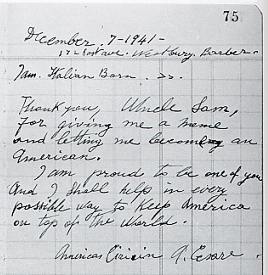 75
December, 7-1941-
ave. Westbury. Barber.
I am. Italian Born.
Thank you, Uncle Sam,
for giving me a home
and letting me becoming an
American.
I am proud to be one of you
And I shall help in every
possible way to keep America
on top of the World.
Americas A. Cesare.